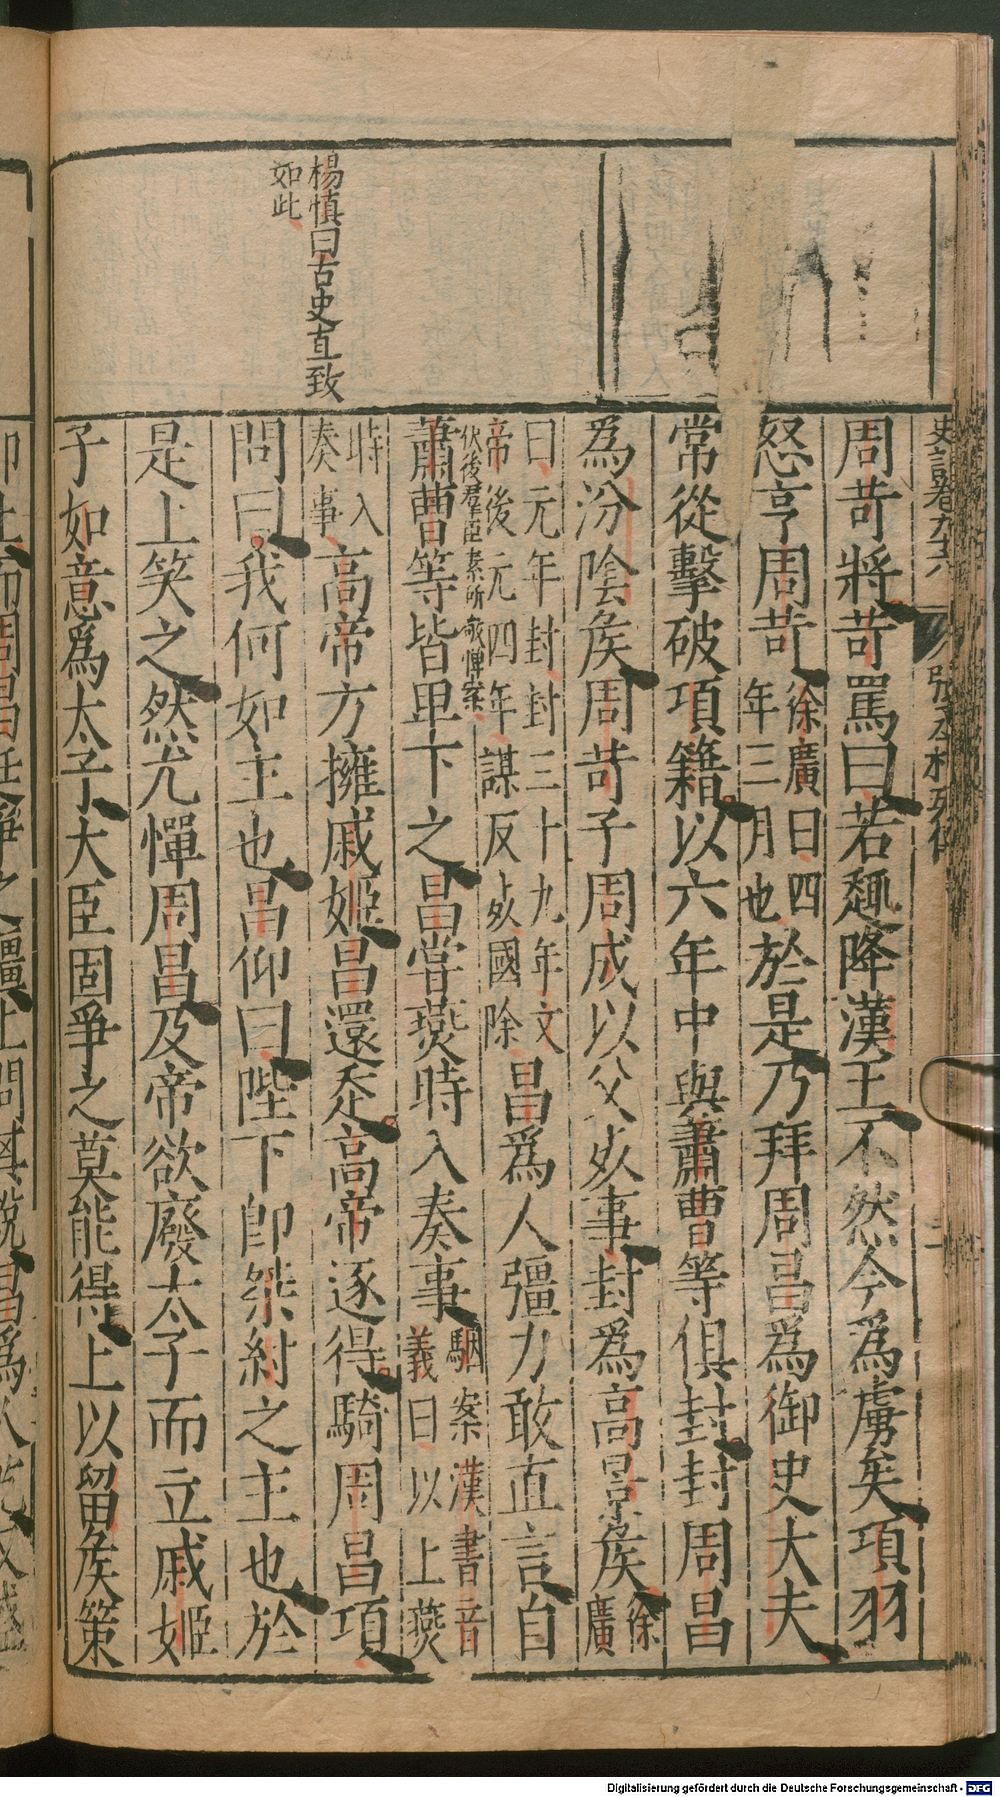 楊慎曰古史直致
如此
史記卷九十六
周苛將苛罵曰若趣降漢王不然今為虜矣項羽
怒亨周苛徐廣曰四年三月也於是乃拜周昌為御史大夫
常從擊破項籍以六年中與蕭曹等俱封封周昌
為汾陰矦周苛子周成以父死事封為高景矦徐廣
曰元年封封三十九年文帝後元四年謀反死國除昌為人彊力敢直言自
蕭曹等皆卑下之昌嘗燕時入奏事駰案漢書音義曰以上燕
時入奏事高帝方擁戚姬昌還走高帝逐得騎周昌項
問曰我何如主也昌仰曰陛下卽桀紂之主也於
是上笑之然尤憚周昌及帝欲廢太子而立戚姬
子如意為太子大臣固爭之莫能得上以留矦策
Digitalisierung gefördert durch die Deutsche Forschungsgemeinschaft - DFG